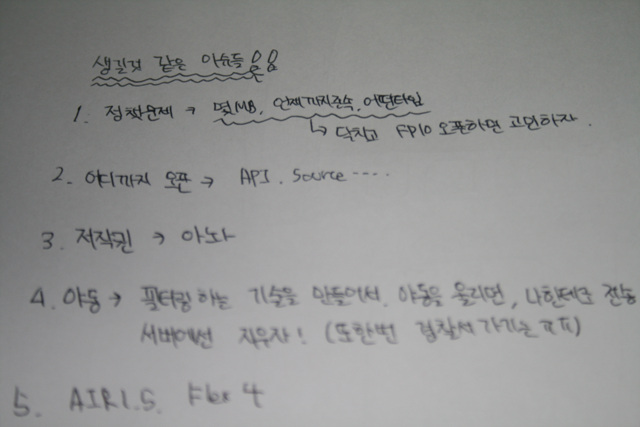 생길것 같은 이슈들
1. 정책문제 → 몇MB, 언제까지존속, 어떤타입
↳ 닥치고 FP10 오픈하면 고민하자.
2. 어디까지 오픈 → API. Source ....
3. 저작권 → 아놔
4. 야동 → 필터링하는 기술을 만들어서, 야동을 올리면, 나한테로 전송
서버에선 지우자! (또한번 경찰서 가기는
5. AIR1.5. 4